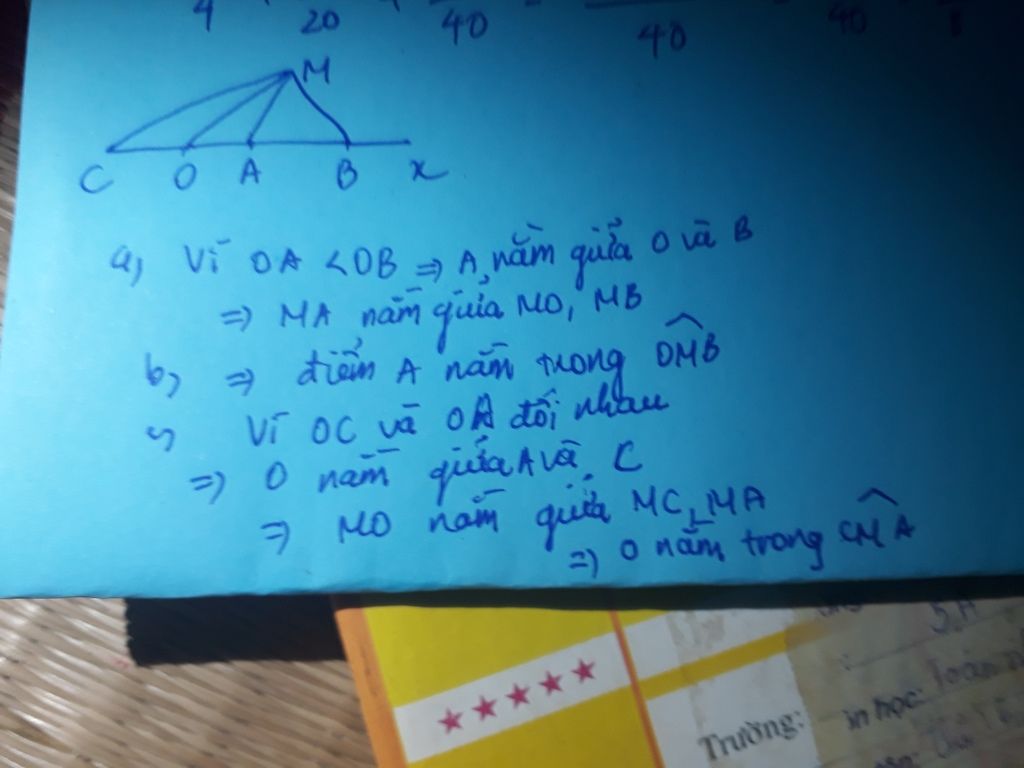 4 20 40 40 40
M
C O A B x
a, Vì OA < OB => A nằm giữa O và B
=> MA nằm giữa MO, MB
b, => điểm A nằm trong OMB
c, Vì OC và OA đối nhau
=> O nằm giữa A và C
=> MO nằm giữa MC, MA
=> O nằm trong CMA
5A
Trường:
in học: Toán